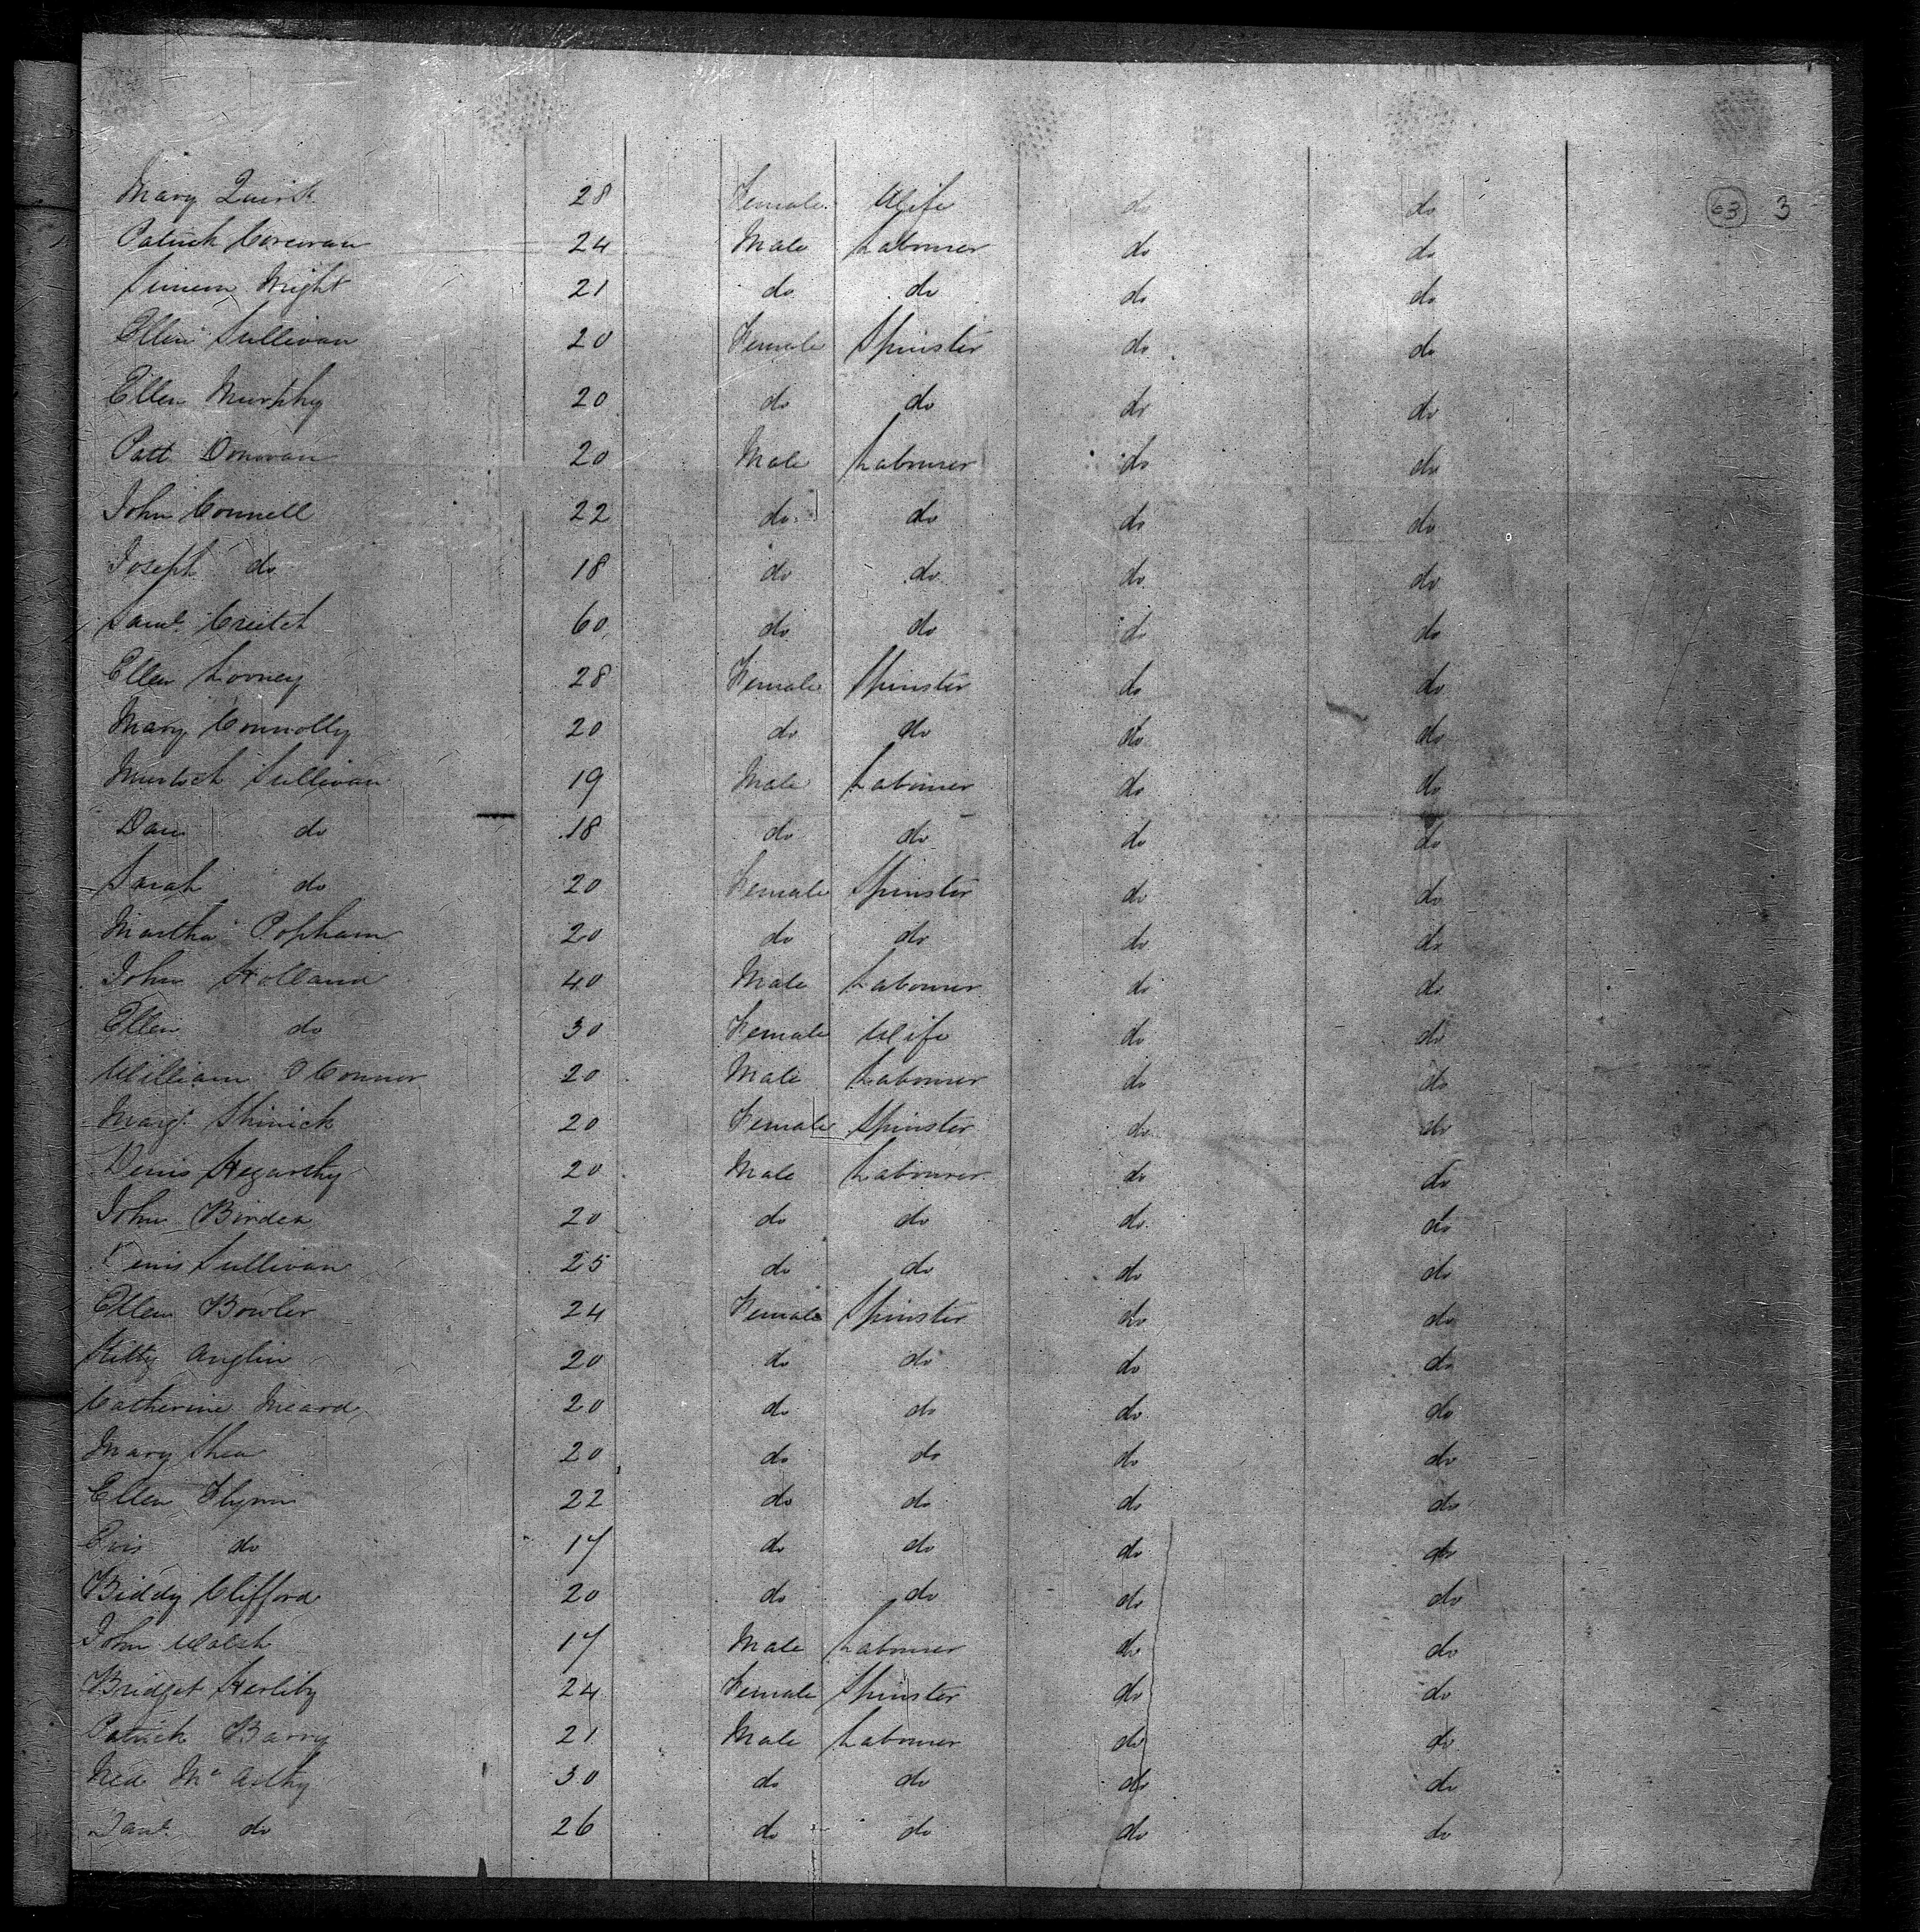 Mary Quirk 28 Female Wife do do 63 3
Patrick Corcoran 24 Male Labourer do do
Simeon Wright 21 do do do do
Ellen Sullivan 20 Female Spinster do do
Ellen Murphy 20 do do do do
Patt Donovan 20 Male Labourer do do
John Connell 22 do do do do
Joseph do 18 do do do do
Saml. 60 do do do do
Ellen Looney 28 Female Spinster do do
Mary Connolly 20 do do do do
Murtoch Sullivan 19 Male Labourer do do
Dan do 18 do do do do
Sarah do 20 Female Spinster do do
Martha Popham 20 do do do do
John Holland 40 Male Labourer do do
Ellen do 30 Female Wife do do
William O Connor 20 Male Labourer do do
Margt. Shinick 20 Female Spinster do do
Denis Hegarthy 20 Male Labourer do do
John Borden 20 do do do do
Denis Sullivan 25 do do do do
Ellen Bowler 24 Female Spinster do do
Kitty Anglin 20 do do do do
Catherine Meard 20 do do do do
Mary Shea 20 do do do do
Ellen Flynn 22 do do do do
do 17 do do do do
Biddy Clifford 20 do do do do
John Walsh 17 Male Labourer do do
Bridget Herliby 24 Female Spinster do do
Patrick Barry 21 Male Labourer do do
Ned Mc Arthy 30 do do do do
Danl. do 26 do do do do